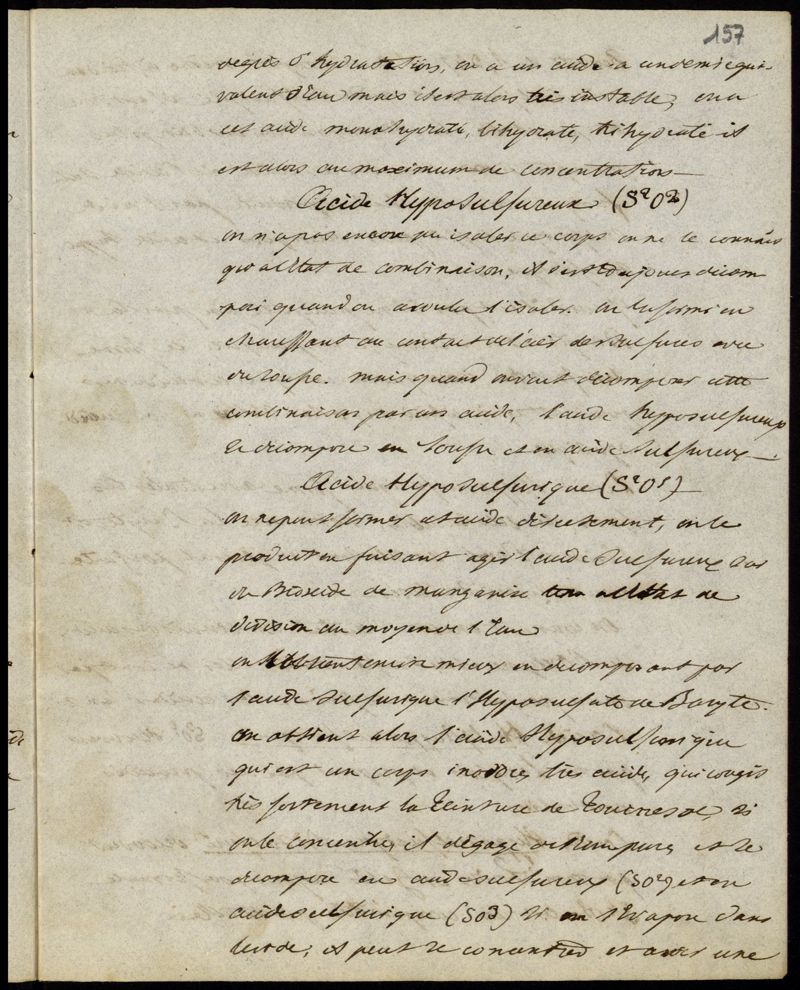 157
degrés d'hydratation, on a un acide a un demi equi-
valent d'eau mais il est alors très instable, on a
cet acide monohydraté, bihydraté, trihydraté il
est alors au maximum de concentration
Acide Hyposulfureux (S²O²)
on n'a pas encore pu isoler ce corps on ne le connais
qu'a l'état de combinaison, il s'est toujours décom
posé quand on a voulu l'isoler. on le forme en
chauffant au contact de l'air des sulfures avec
du soufre. mais quand on veut décomposer cette
combinaison par un acide, l'acide hyposulfureux
se décompose en soufre et en acide sulfureux
Acide Hyposulfurique (S²O⁵)
on ne peut former cet acide directement, on le
produit en faisant agir l'acide sulfureux sur
du Bioxide de manganèse a l'état de
division au moyen de l'eau
on l'obtient encore mieux en décomposant par
l'acide sulfurique l'Hyposulfate de Baryte.
on obtient alors l'acide Hyposulfurique
qui est un corps inodore, très acide, qui rougit
très fortement la teinture de Tournesol, si
on le concentre, il dégage de l'eau pure, et se
décompose en acide sulfureux (SO²) et en
acide sulfurique (SO3) si on l'évapore dans
le vide, il peut se concentrer et avoir une